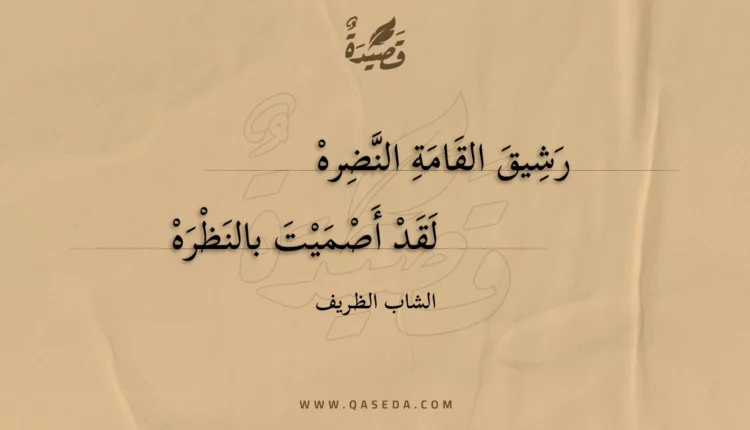 قَصِيْدَةٌ
رَشِيقَ القَامَةِ النَّضِرهْ
لَقَدْ أَصْمَيْتَ بالنَظْرَهْ
الشاب الظريف
WWW.QASEDA.COM